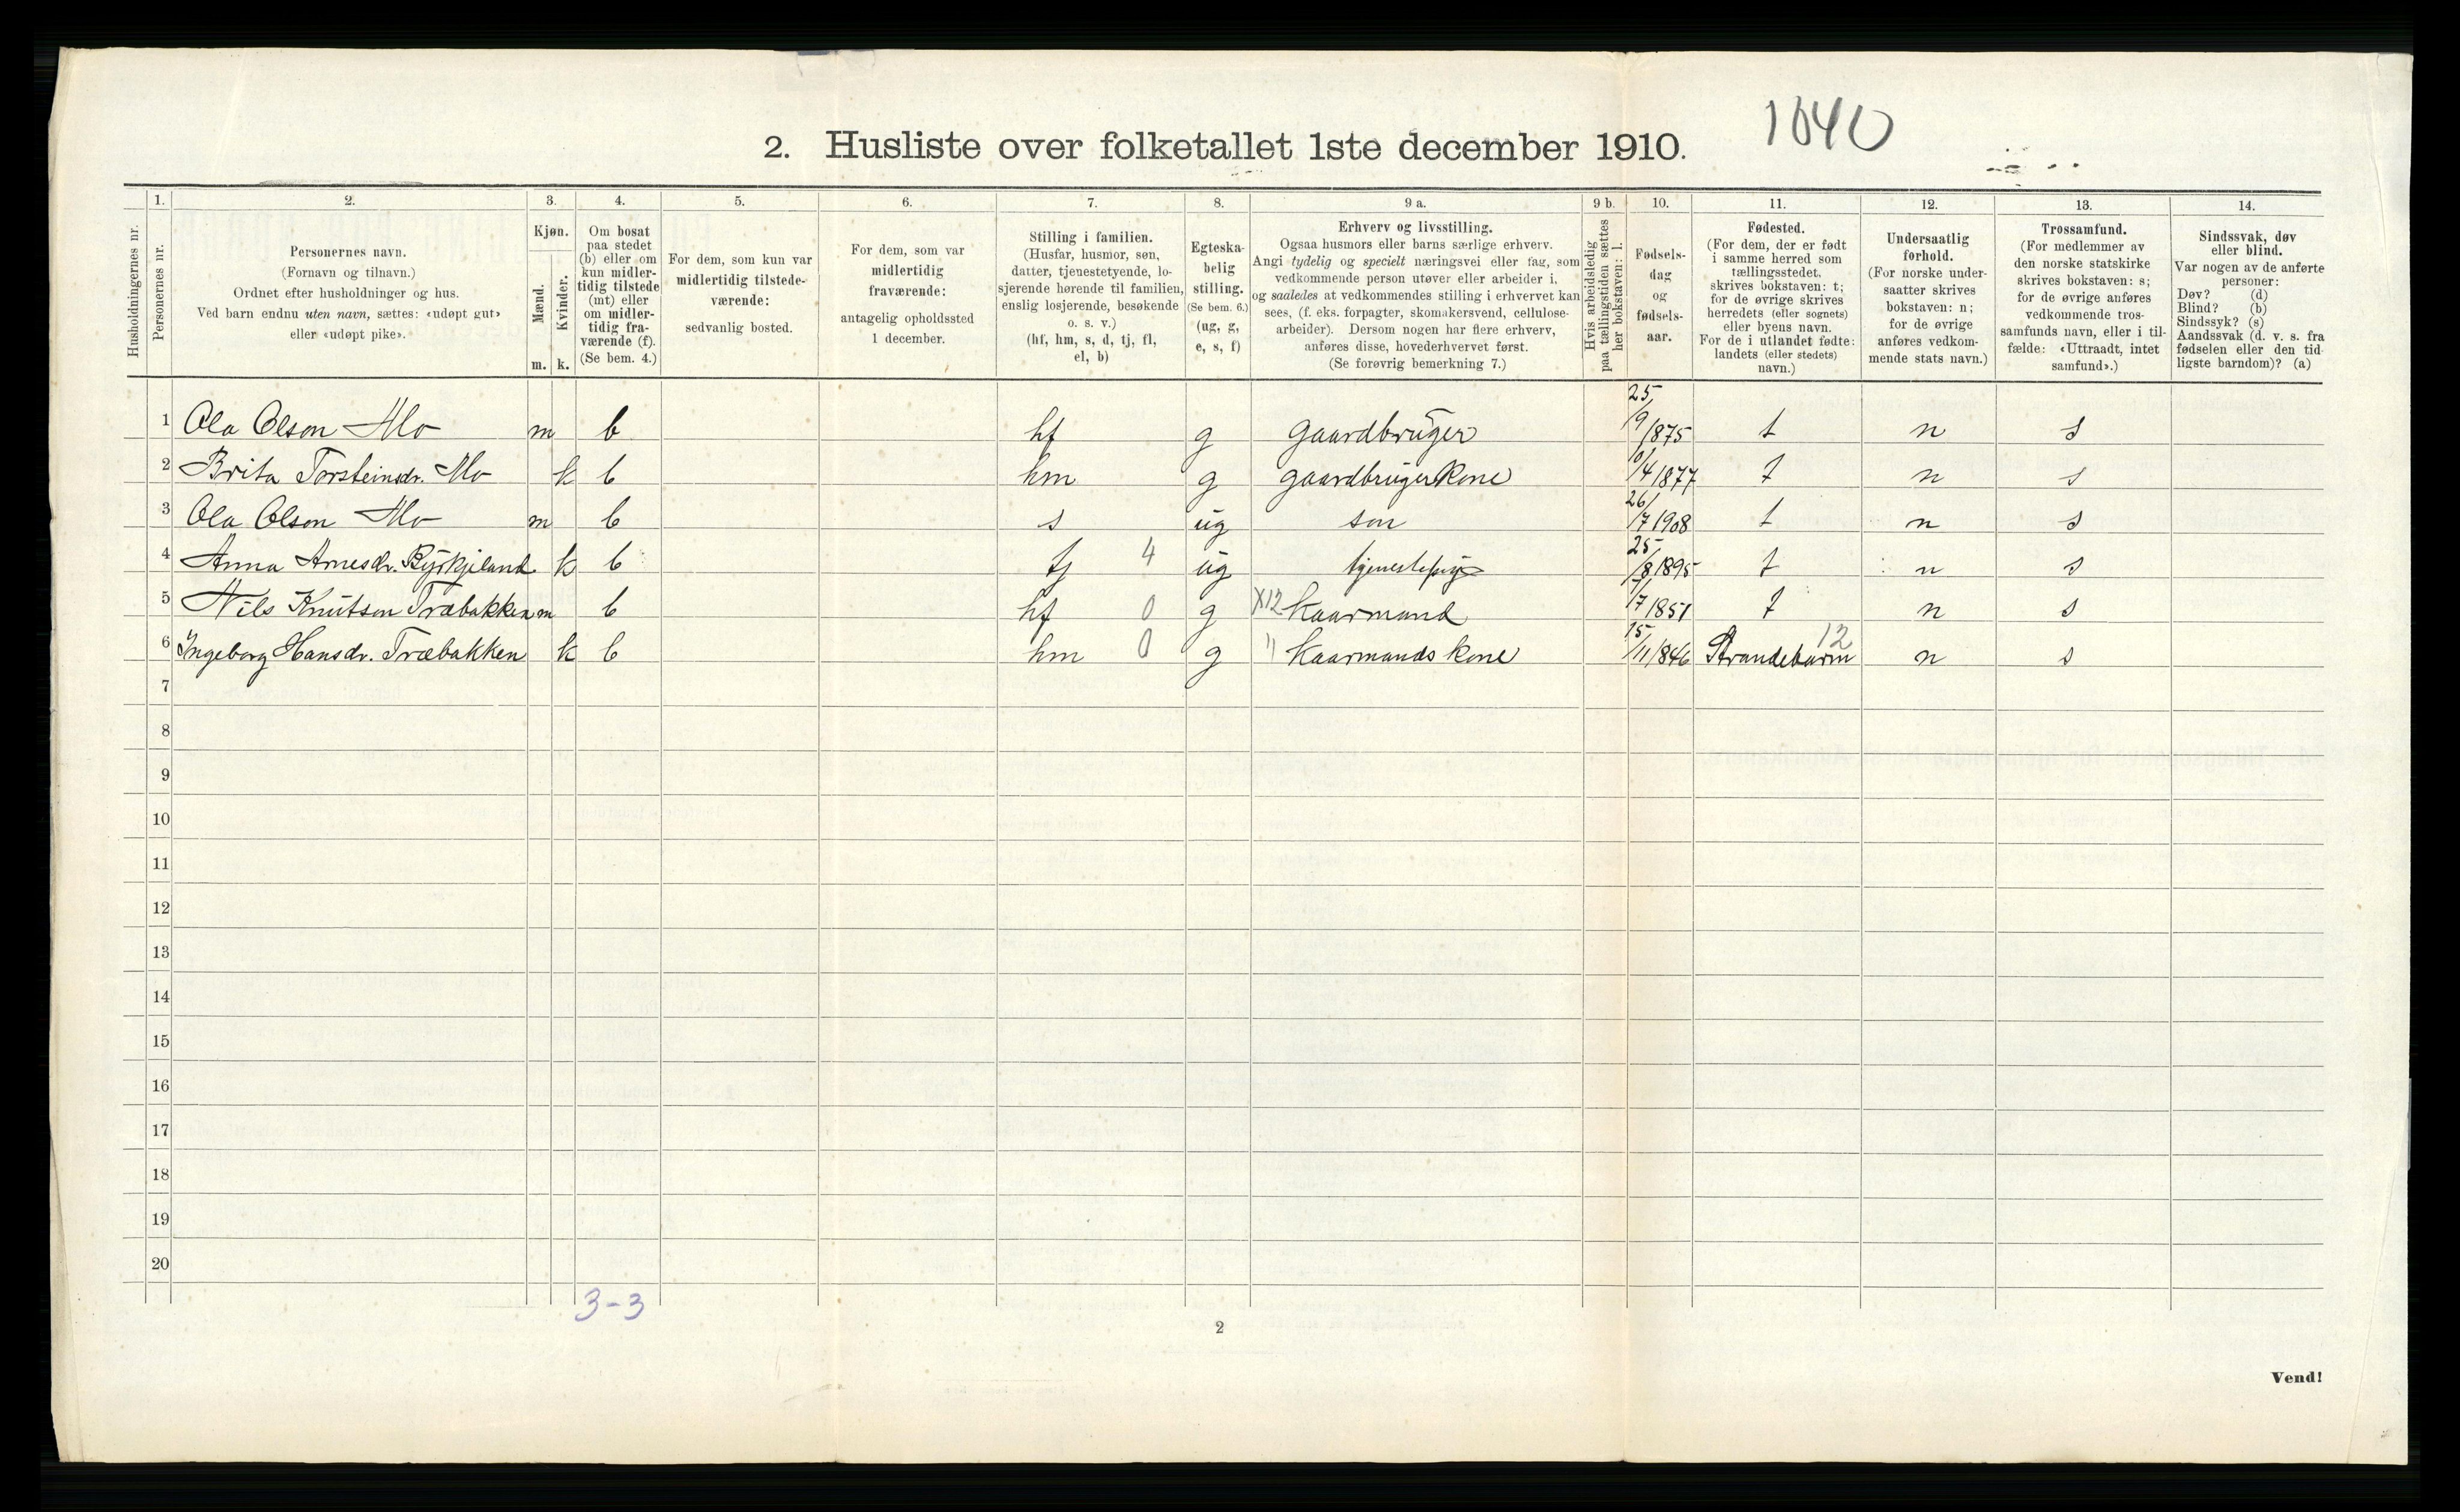 1040
2. Husliste over folketallet 1ste december 1910.
Husholdningernes nr.
1.
Personernes nr.
2.
Personernes navn.
(Fornavn og tilnavn.)
Ordnet efter husholdninger og hus.
Ved barn endnu uten navn, sættes: «udøpt gut»
eller «udøpt pike».
3.
Kjøn.
Mænd.
Kvinder.
m. k.
4.
Om bosat
paa stedet
(b) eller om
kun midler-
tidig tilstede
(mt) eller
om midler-
tidig fra-
værende (f).
(Se bem. 4.)
5.
For dem, som kun var
midlertidig tilstede-
værende:
sedvanlig bosted.
6.
For dem, som var
midlertidig
fraværende:
antagelig opholdssted
1 december.
7.
Stilling i familien.
(Husfar, husmor, søn,
datter, tjenestetyende, lo-
sjerende hørende til familien,
enslig losjerende, besøkende
o. s. v.)
(hf, hm, s, d, tj, fl,
el, b)
8.
Egteska-
belig
stilling.
(Se bem. 6.)
(ug, g,
e, s, f)
9 a.
Erhverv og livsstilling.
Ogsaa husmors eller barns særlige erhverv.
Angi tydelig og specielt næringsvei eller fag, som
vedkommende person utøver eller arbeider i,
og saaledes at vedkommendes stilling i erhvervet kan
sees, (f. eks. forpagter, skomakersvend, cellulose-
arbeider). Dersom nogen har flere erhverv,
anføres disse, hovederhvervet først.
(Se forøvrig bemerkning 7.)
9 b.
Hvis arbeidsledig
paa tællingstiden sættes
her bokstaven: l.
10.
Fødsels-
dag
og
fødsels-
aar.
11.
Fødested.
(For dem, der er født
i samme herred som
tællingsstedet,
skrives bokstaven: t;
for de øvrige skrives
herredets (eller sognets)
eller byens navn.
For de i utlandet fødte:
landets (eller stedets)
navn.)
12.
Undersaatlig
forhold.
(For norske under-
saatter skrives
bokstaven: n;
for de øvrige
anføres vedkom-
mende stats navn.)
13.
Trossamfund.
(For medlemmer av
den norske statskirke
skrives bokstaven: s;
for de øvrige anføres
vedkommende tros-
samfunds navn, eller i til-
fælde: «Uttraadt, intet
samfund».)
14.
Sindssvak, døv
eller blind.
Var nogen av de anførte
personer:
Døv? (d)
Blind? (b)
Sindssyk? (s)
Aandssvak (d. v. s. fra
fødselen eller den tid-
ligste barndom)? (a)
1 Ola Olson Mo m b hf g gaardbruger 25/9 1875 t n s
2 Brita Torsteinsdr. Mo k b hm g gaardbrugerkone 10/4 1877 t n s
3 Ola Olson Mo m b s ug son 26/7 1908 t n s
4 Anna Arnesdr. Byrkjeland k b tj 4 ug tjenestepige 25/8 1895 t n s
5 Nils Knutson Træbakken m b hf 0 g X12 Kaarmand 7/7 1851 t n s
6 Ingeborg Hansdr. Træbakken k b hm 0 g " Kaarmands kone 15/11 1846 Strandebarm 12 n s
7
8
9
10
11
12
13
14
15
16
17
18
19
20
3-3
2
Vend!